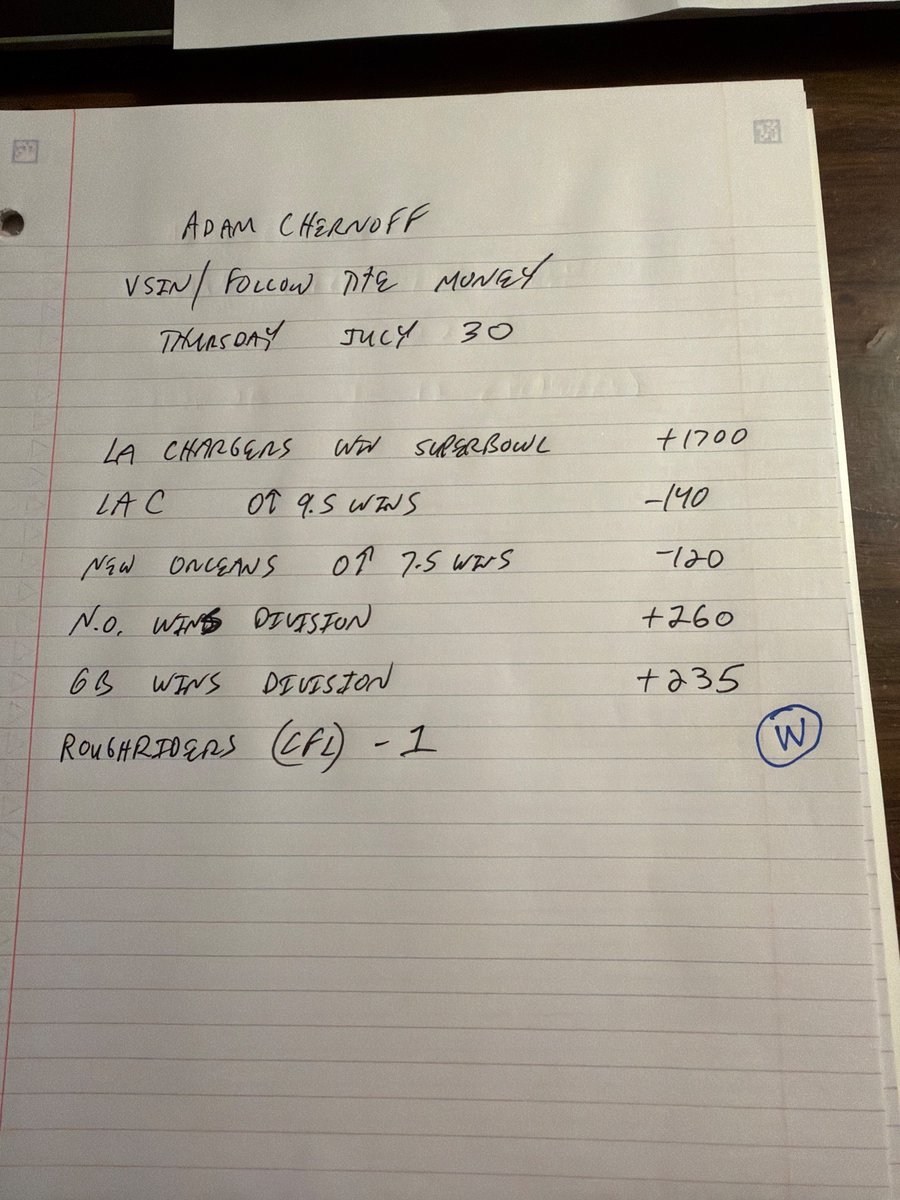 ADAM CHERNOFF
VSIN/FOLLOW THE MONEY
THURSDAY JULY 30
LA CHARGERS WIN SUPERBOWL +1700
LAC O↑ 9.5 WINS -140
NEW ORLEANS O↑ 7.5 WINS -120
N.O. WINS DIVISION +260
GB WINS DIVISION +235
ROUGHRIDERS (CFL) -1 W